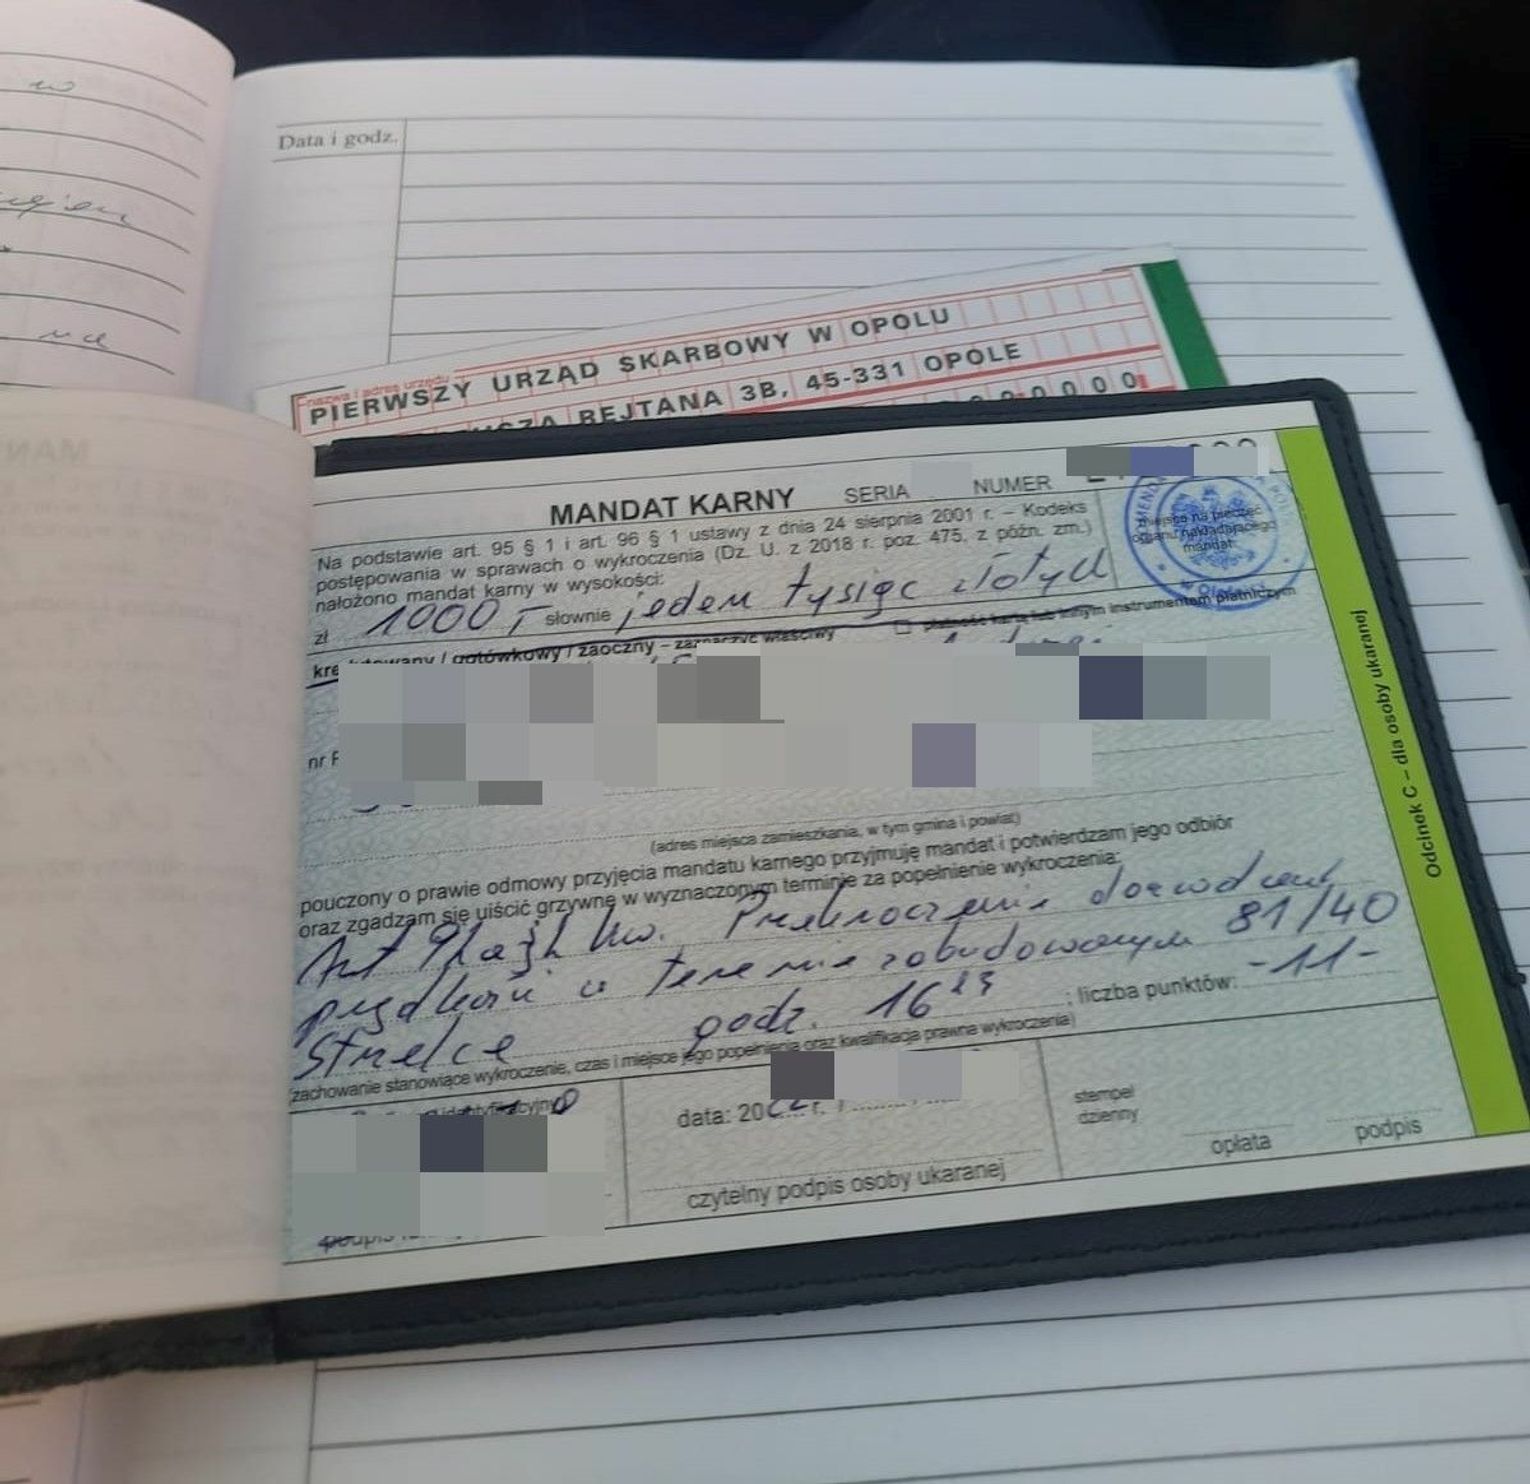 Data i godz.
PIERWSZY URZĄD SKARBOWY W OPOLU
REJTANA 3B, 45-331 OPOLE
MANDAT KARNY SERIA NUMER
Na podstawie art. 95 § 1 i art. 96 § 1 ustawy z dnia 24 sierpnia 2001 r. – Kodeks
postępowania w sprawach o wykroczenia (Dz. U. z 2018 r. poz. 475, z późn. zm.)
nałożono mandat karny w wysokości:
miejsce na pieczęć
organu nakładającego
mandat
zł 1000,- słownie jeden tysiąc złotych
gotówkowy / zaoczny – zaznaczyć właściwy płatność kartą lub innym instrumentem płatniczym
nr
(adres miejsca zamieszkania, w tym gmina i powiat)
pouczony o prawie odmowy przyjęcia mandatu karnego przyjmuję mandat i potwierdzam jego odbiór
oraz zgadzam się uiścić grzywnę w wyznaczonym terminie za popełnienie wykroczenia:
Art kw. Przekroczenie
prędkości w terenie zabudowanym 81/40
Strzelce godz. 16 ; liczba punktów: -11-
(zachowanie stanowiące wykroczenie, czas i miejsce jego popełnienia oraz kwalifikacja prawna wykroczenia)
data: 2022 r.
czytelny podpis osoby ukaranej
stempel
dzienny
opłata
podpis
Odcinek C – dla osoby ukaranej